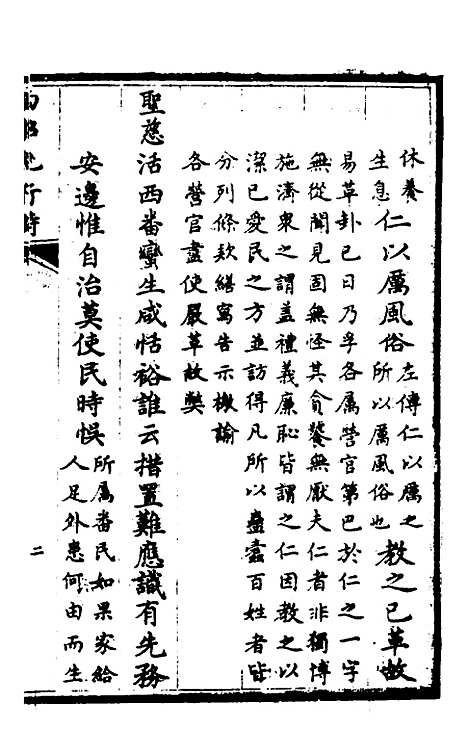 休養生息仁以厲風俗左傳仁以厲之所以厲風俗也教之巳革故
易革卦巳日乃孚各属營官第巴於仁之一字
無從聞見固無怪其貪饕無厭夫仁者非獨博
施濟衆之謂蓋禮義廉恥皆謂之仁因教之以
潔已愛民之方並訪得凡所以蠱蠹百姓者皆
分列條欵繕寫告示檄諭
各營官盡使嚴革故獘
聖慈活西番蠻生咸恬裕誰云措置難應識有先務
安邊惟自治莫使民時悞所属番民如果家給人足外患何由而生
西招紀行詩
二